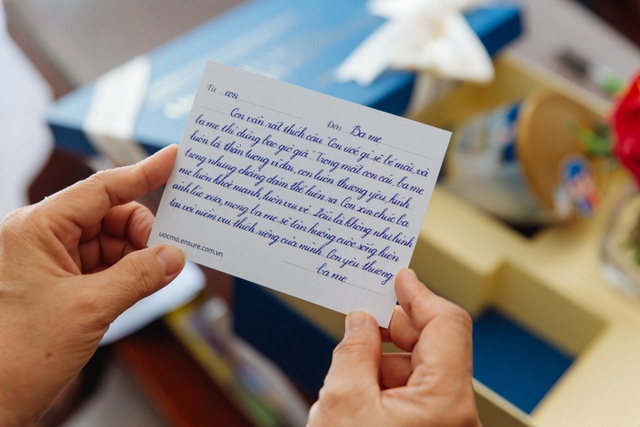 Từ con
Đến Ba mẹ
Con vẫn rất thích câu: Con ước gì sẽ bé mãi, và
ba mẹ thì đừng bao giờ già. Trong mắt con cái, ba mẹ
luôn là thần tượng vĩ đại, con luôn thương yêu, kính
trọng nhưng chẳng dám thể hiện ra. Con xin chúc ba
mẹ luôn khoẻ mạnh, luôn vui vẻ. Dẫu là không như hình
ảnh lúc xưa, mong ba mẹ sẽ tận hưởng cuộc sống hiện
tại với niềm vui thích riêng của mình. Con yêu thương
ba mẹ
uocmo.ensure.com.vn